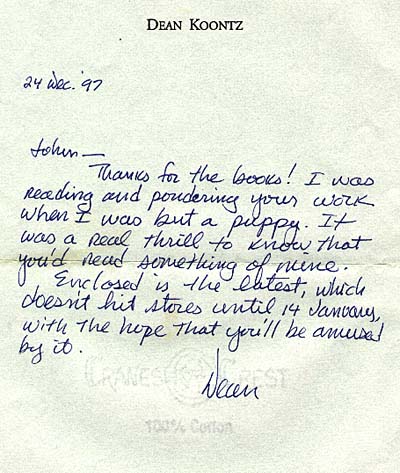 DEAN KOONTZ
24 Dec. '97
John—
Thanks for the books! I was
reading and pondering your work
when I was but a puppy. It
was a real thrill to know that
you'd read something of mine.
Enclosed is the latest, which
doesn't hit stores until 14 January,
with the hope that you'll be amused
by it.
CRANE'S CREST
Dean
100% Cotton